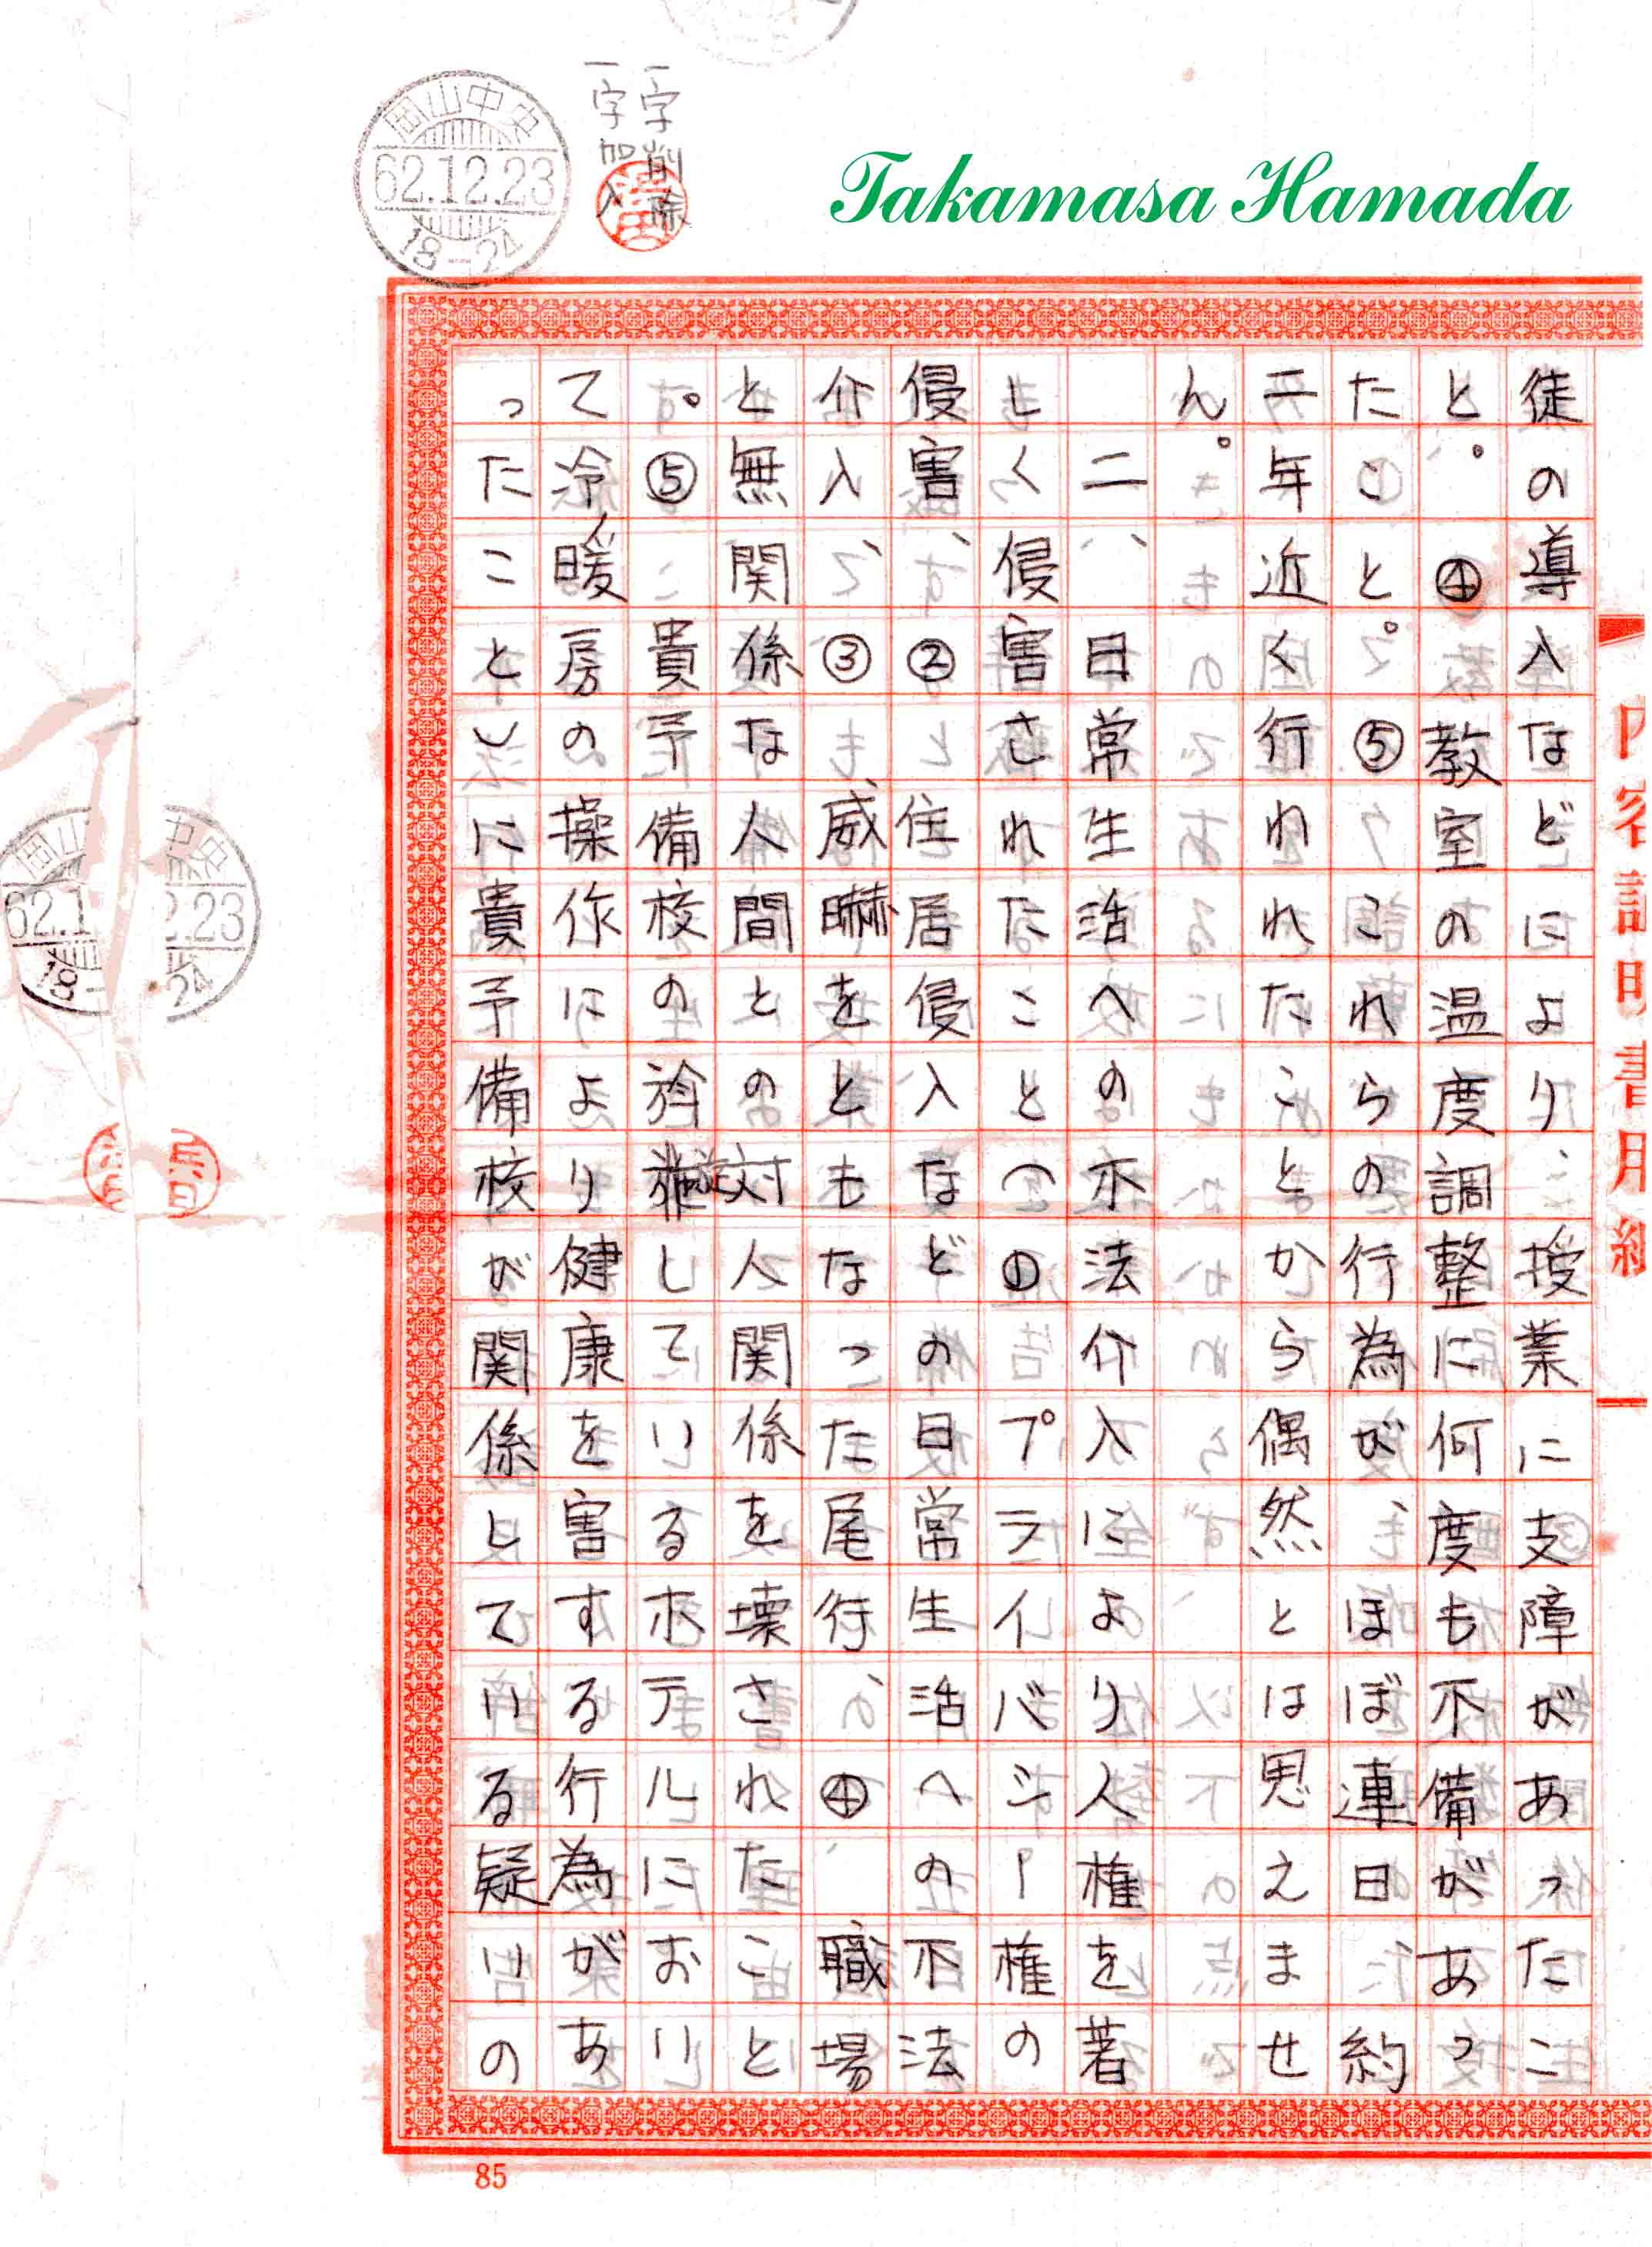 Takamasa Hamada
岡山中央
62.12.23
18-24
一字削除
一字加入
内容証明書用紙
徒の導入などにより、授業に支障があったこ
と。④教室の温度調整に何度も不備があっ
たこと。⑤これらの行為が、ほぼ連日約
二年近く行われたことから偶然とは思えませ
ん。
二、日常生活への不法介入により人権を著
しく侵害されたこと(①プライバシー権の
侵害、②住居侵入などの日常生活への不法
介入、③威嚇をともなった尾行、④職場
と無関係な人間との対人関係を壊されたこと
。⑤貴予備校の斡旋しているホテルにおい
て冷暖房の操作により健康を害する行為があ
ったことに貴予備校が関係している疑いの
岡山中央
62.12.23
18-24
85